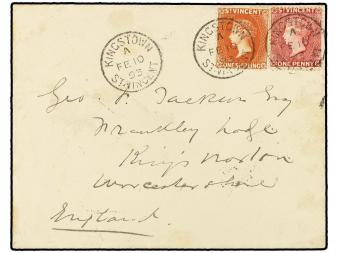 KINGSTOWN
A
FE 10
93
ST. VINCENT
KINGSTOWN
A
FE 10
ST. VINCENT
ST VINCENT
ONE SHILLING
ST VINCENT
ONE PENNY
Geo. F. Jackson Esq
Frankley Lodge
King's Norton
Worcestershire
England